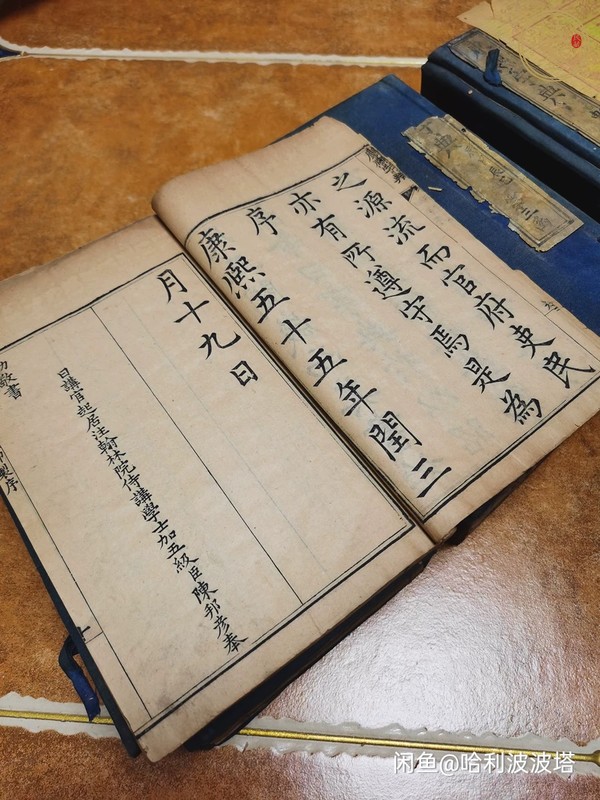 之源流而官府吏民
亦有所遵守焉是為
序
康熙五十五年閏三
月十九日
日講官起居注翰林院侍講學士加五級臣陳邦彥奉
敬書
製序
典
典
闲鱼@哈利波波塔